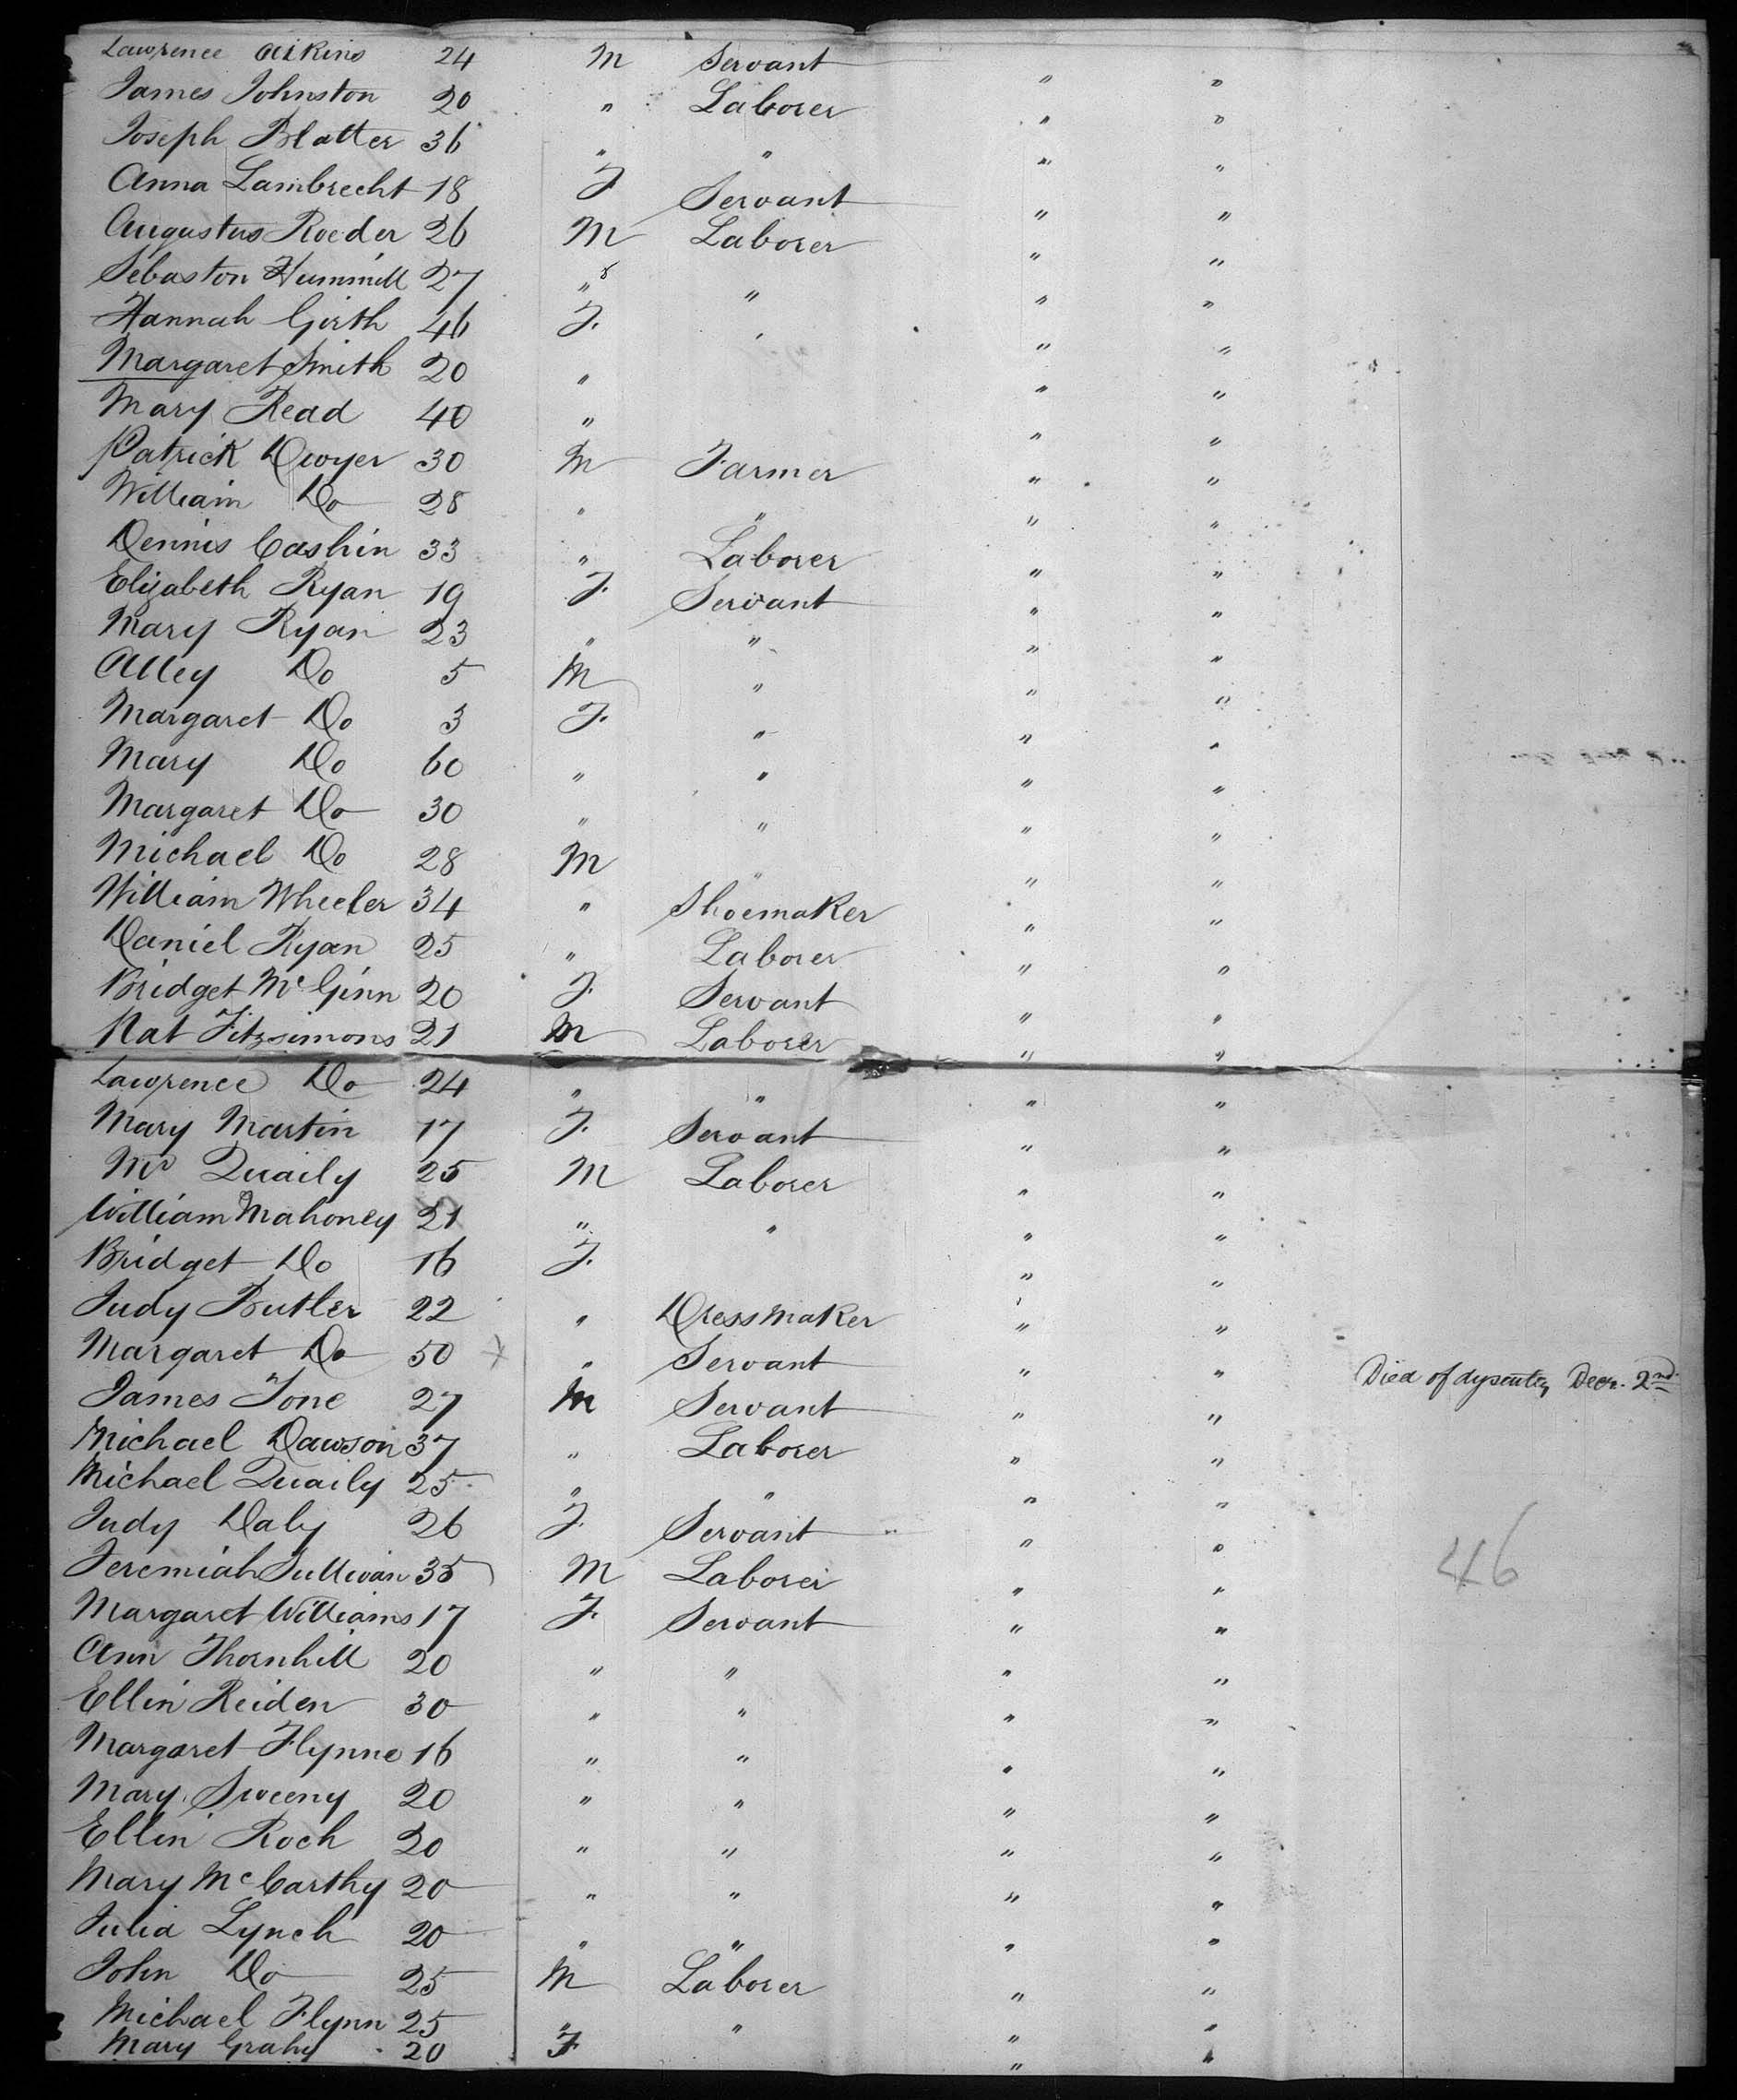 Lawrence Aikins 24 M Servant " "
James Johnston 20 " Laborer " "
Joseph Blatter 36 " " " "
Anna Lambrecht 18 F. Servant " "
Augustus Roeder 26 M Laborer " "
Sebaston Hummill 27 " " " "
Hannah Girth 46 F. " " "
Margaret Smith 20 " " "
Mary Read 40 " " "
Patrick Dwyer 30 M Farmer " "
William Do 28 " " " "
Dennis Cashin 33 " Laborer " "
Elizabeth Ryan 19 F. Servant " "
Mary Ryan 23 " " " "
Alley Do 5 M " " "
Margaret Do 3 F. " " "
Mary Do 60 " " " "
Margaret Do 30 " " " "
Michael Do 28 M " " "
William Wheeler 34 " Shoemaker " "
Daniel Ryan 25 " Laborer " "
Bridget McGinn 20 F. Servant " "
Nat Fitzsimons 21 M Laborer " "
Lawrence Do 24 " " " "
Mary Martin 17 F. Servant " "
Quaily 25 M Laborer " "
William Mahoney 21 " " " "
Bridget Do 16 F. " "
Judy Butler 22 " Dressmaker " "
Margaret Do 50 " Servant " " Died of dysentery Decr. 2nd
James Tone 27 M Servant " "
Michael Dawson 37 " Laborer " "
Michael Quaily 25 " " " "
Judy Daly 26 F. Servant " "
Jeremiah Sullivan 35 M Laborer " " 46
Margaret Williams 17 F. Servant " "
Ann Thornhill 20 " " " "
Ellin Reiden 30 " " " "
Margaret Flynne 16 " " " "
Mary Sweeny 20 " " " "
Ellin Roch 20 " " " "
Mary McCarthy 20 " " " "
Julia Lynch 20 " " " "
John Do 25 M Laborer " "
Michael Flynn 25 " " " "
Mary Grahy 20 F " "